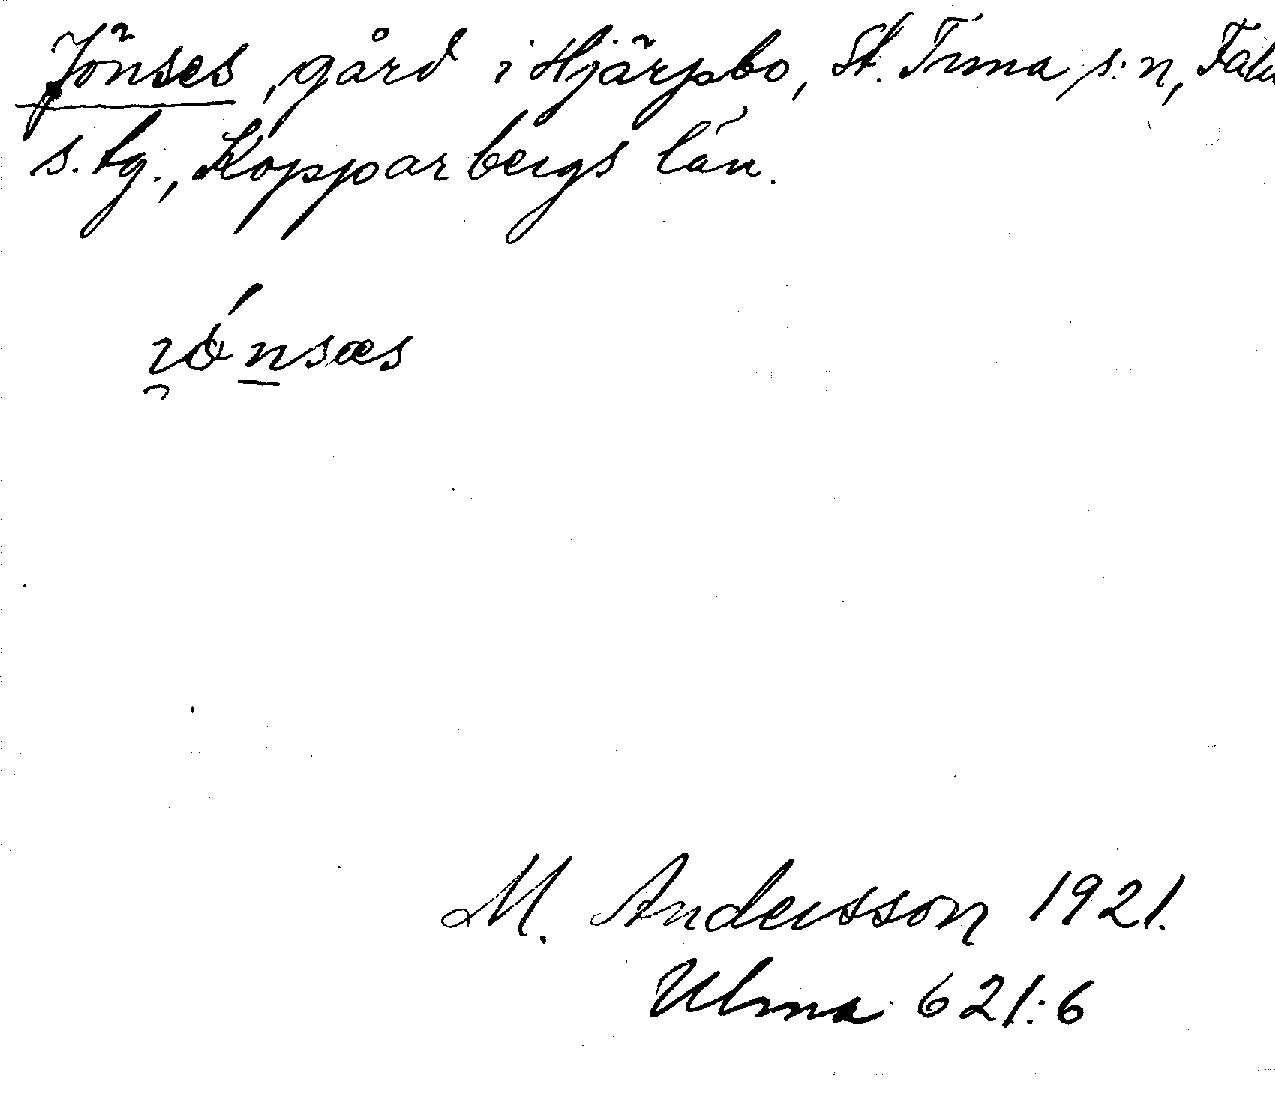 Jönses, gård i Hjärpbo, St. Tuna s:n, Falu
s. tg., Kopparbergs län.
ı̯ǿn̲sæs
M. Andersson 1921.
Ulma 621:6